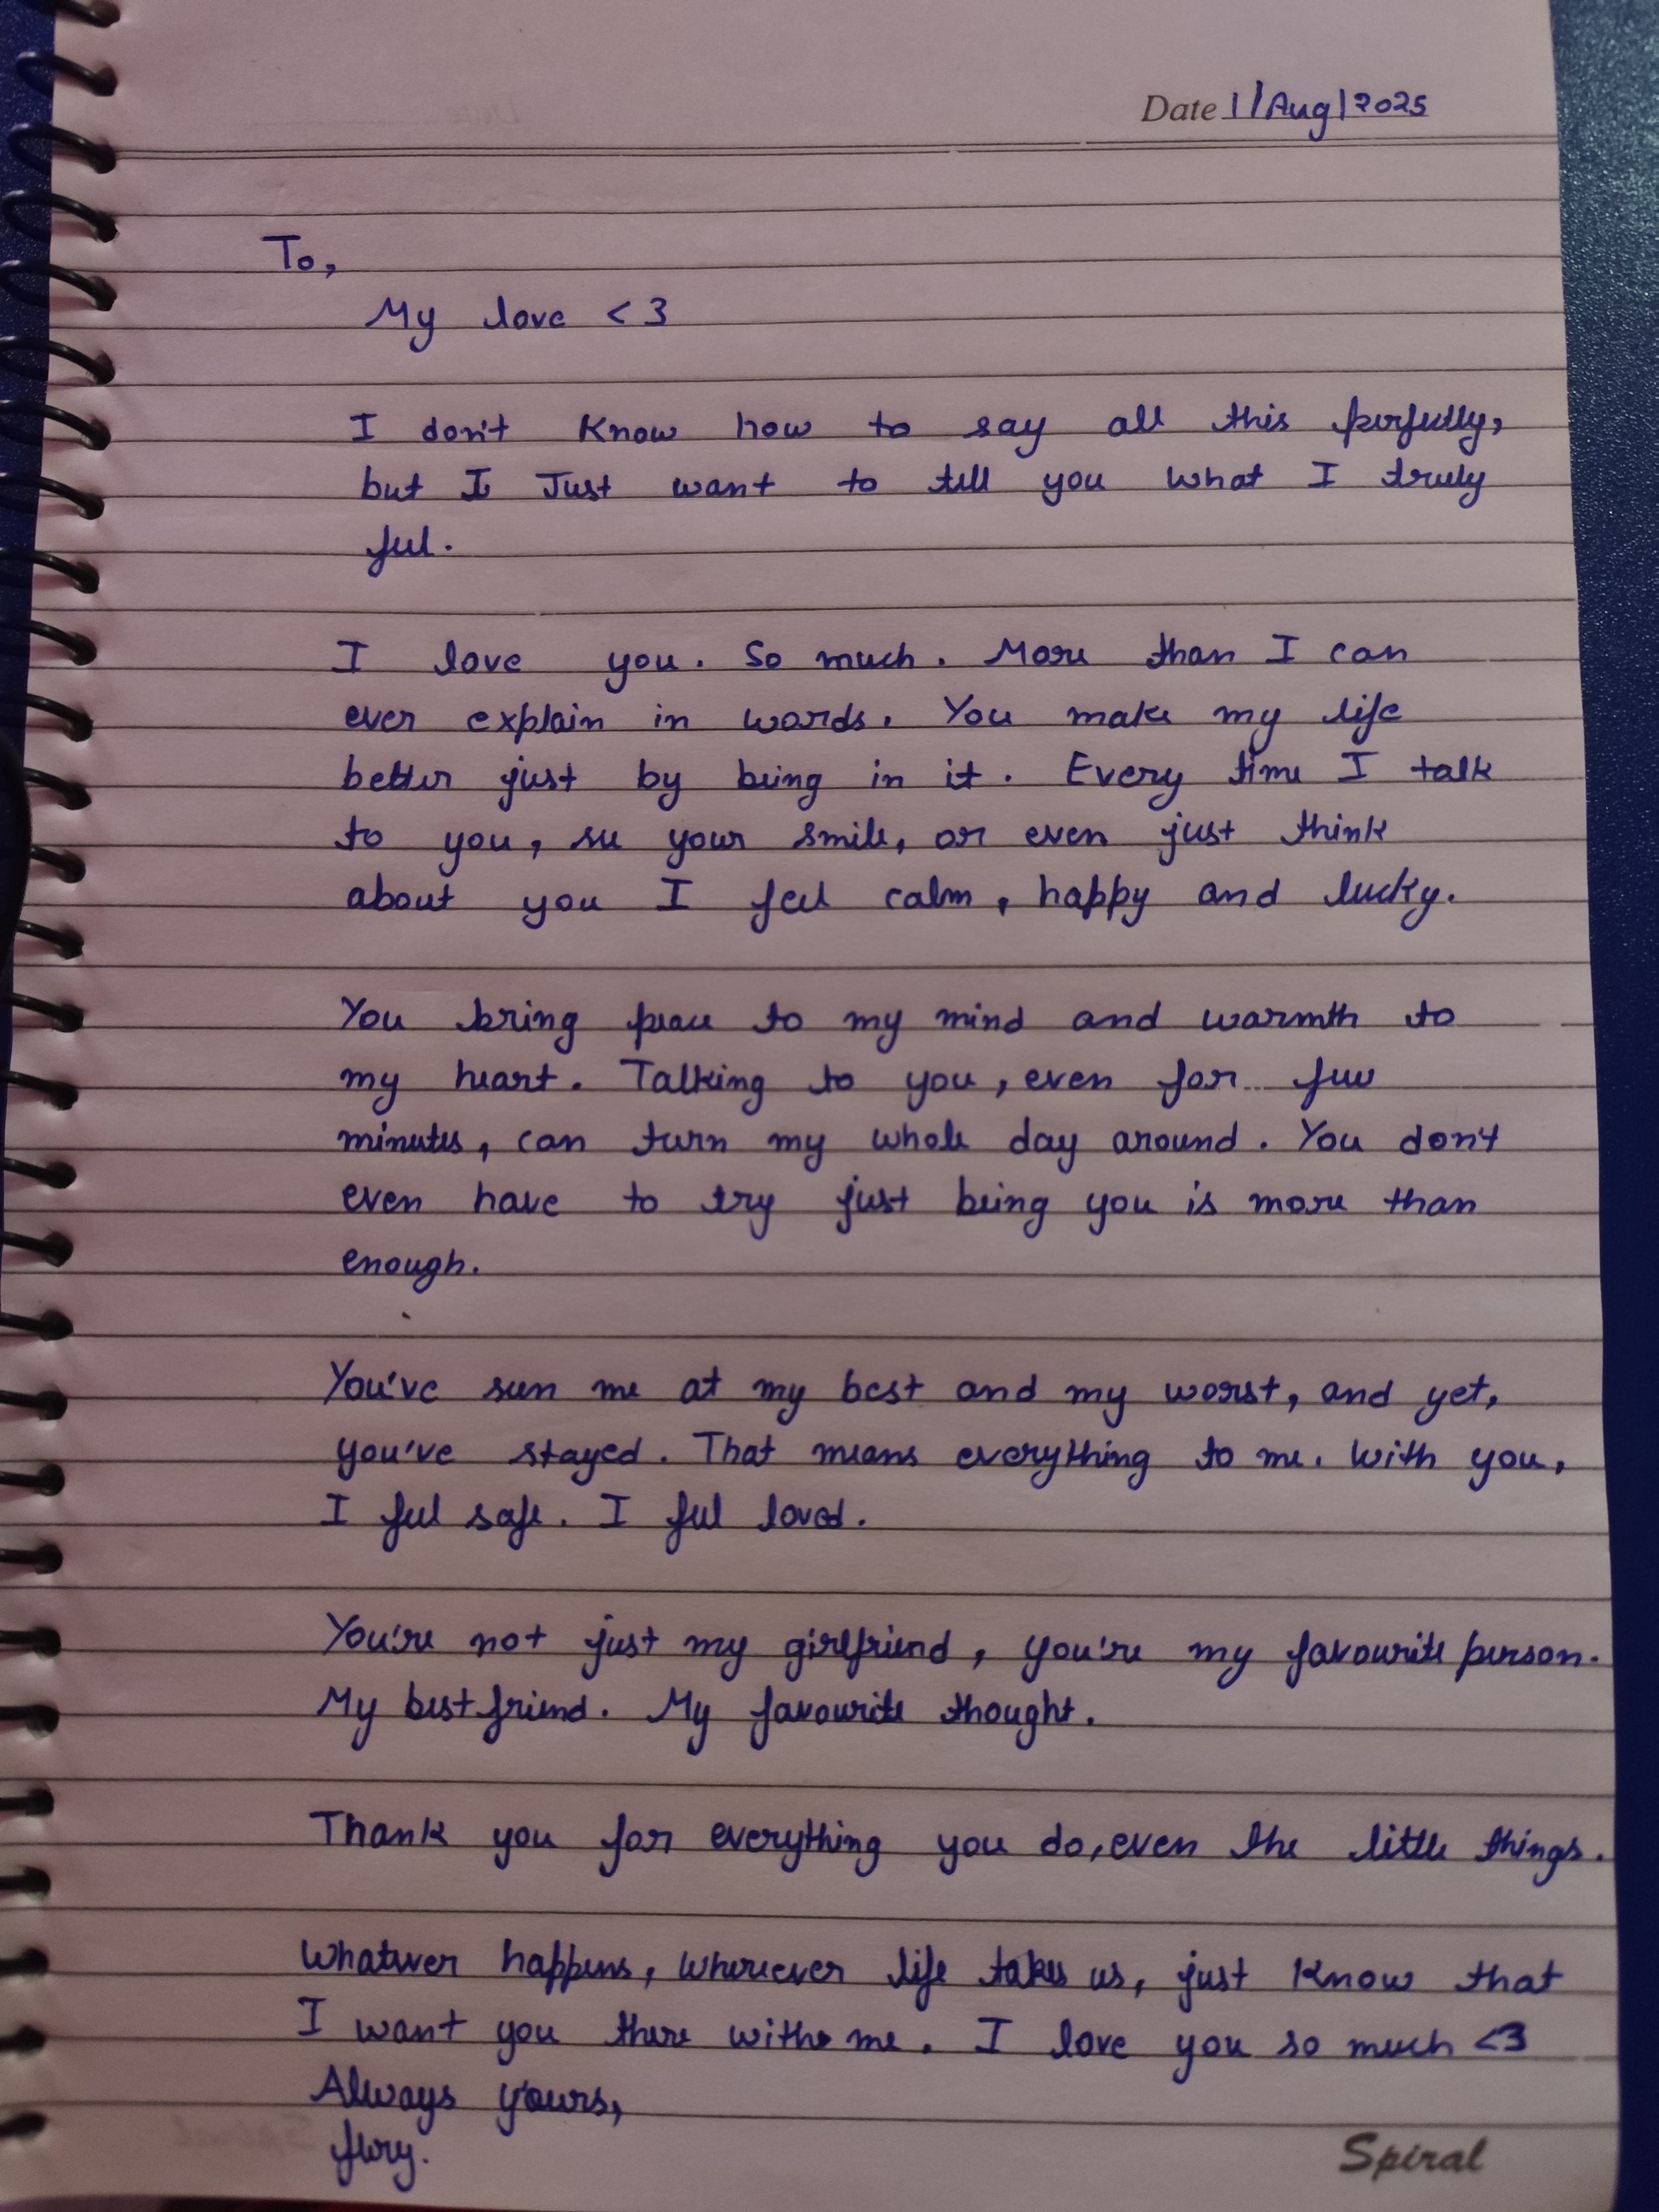 Date 1/Aug/2025
To,
My love <3
I don't know how to say all this perfectly,
but I Just want to tell you what I truly
feel.
I love you. So much. More than I can
ever explain in words. You make my life
better just by being in it. Every time I talk
to you, see your smile, or even just think
about you I feel calm, happy and lucky.
You bring peace to my mind and warmth to
my heart. Talking to you, even for few
minutes, can turn my whole day around. You don't
even have to try just being you is more than
enough.
You've seen me at my best and my worst, and yet,
you've stayed. That means everything to me. With you,
I feel safe. I feel loved.
You're not just my girlfriend, you're my favourite person.
My best friend. My favourite thought.
Thank you for everything you do, even the little things.
Whatever happens, wherever life takes us, just know that
I want you there with me. I love you so much <3
Always yours,
Spiral